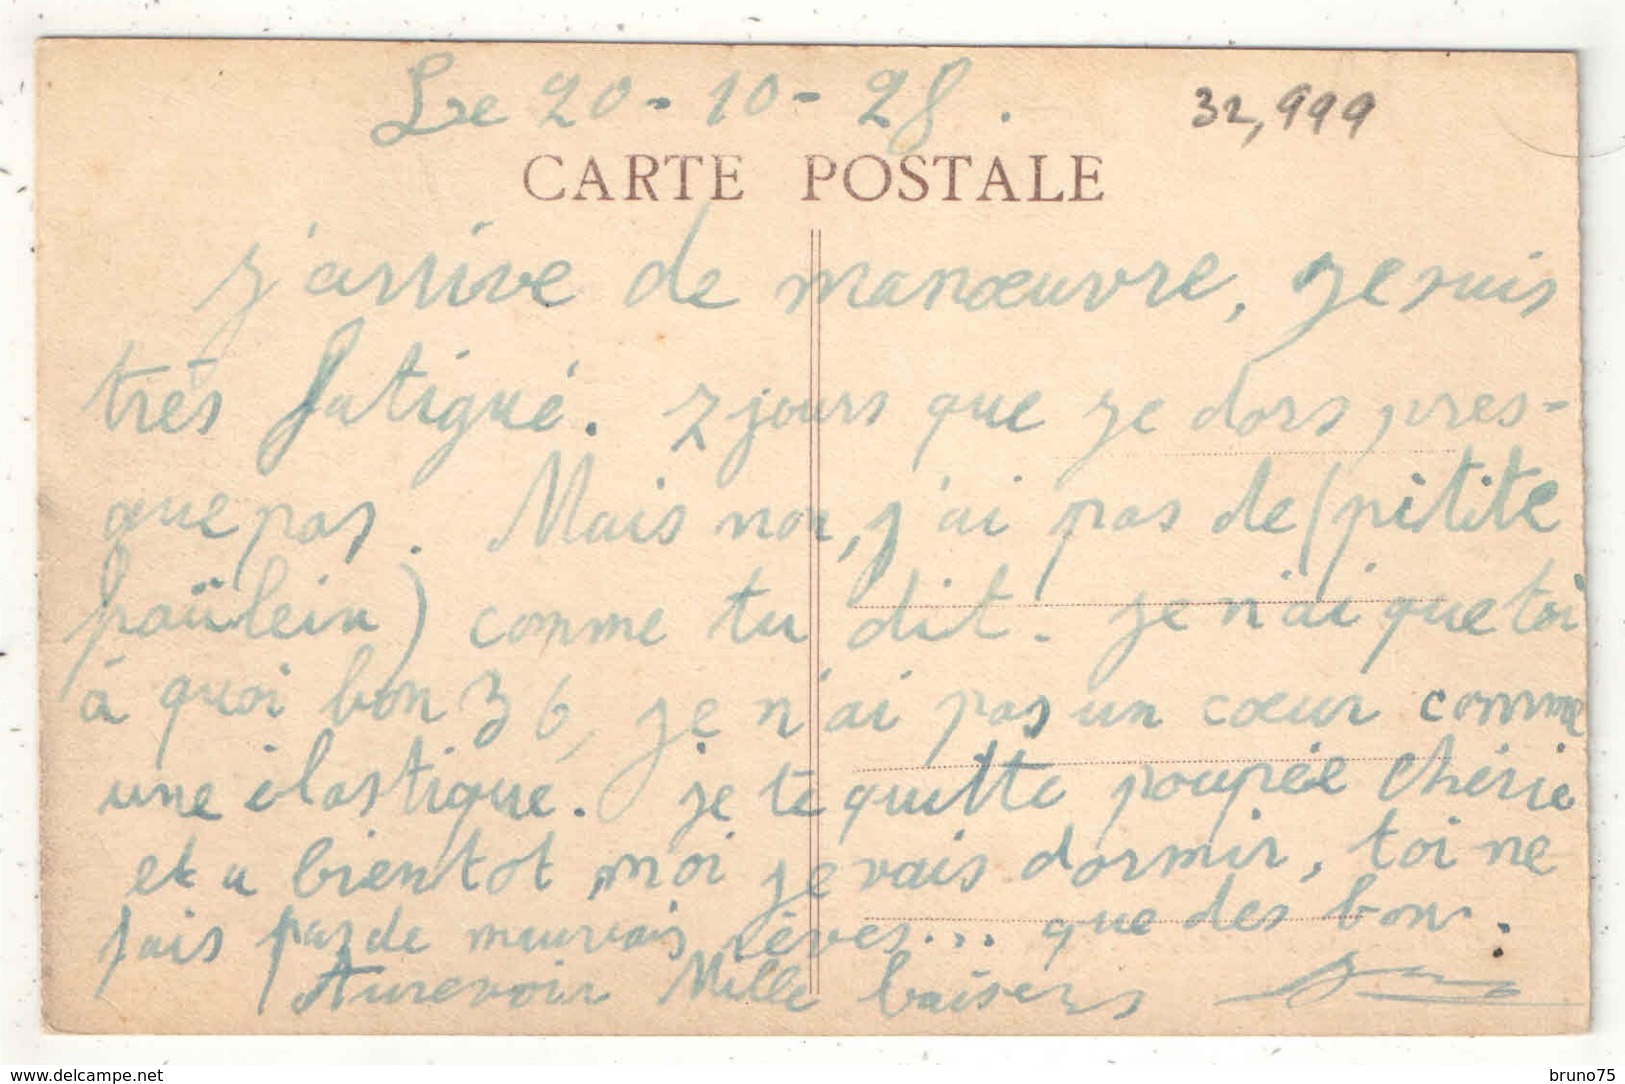 Le 20-10-28.
32,999
CARTE POSTALE
j'arrive de manœuvre, je suis
très fatigué. 2 jours que je dors pres-
que pas. Mais non, j'ai pas de (pitite
paülein) comme tu dit. je n'ai que toi
à quoi bon 36, je n'ai pas un cœur comme
une élastique. je te quitte poupée chérie
et a bientot, moi je vais dormir, toi ne
fais pas de mauvais rêves... que des bon.
Aurevoir Mille baisers
www.delcampe.net
bruno75